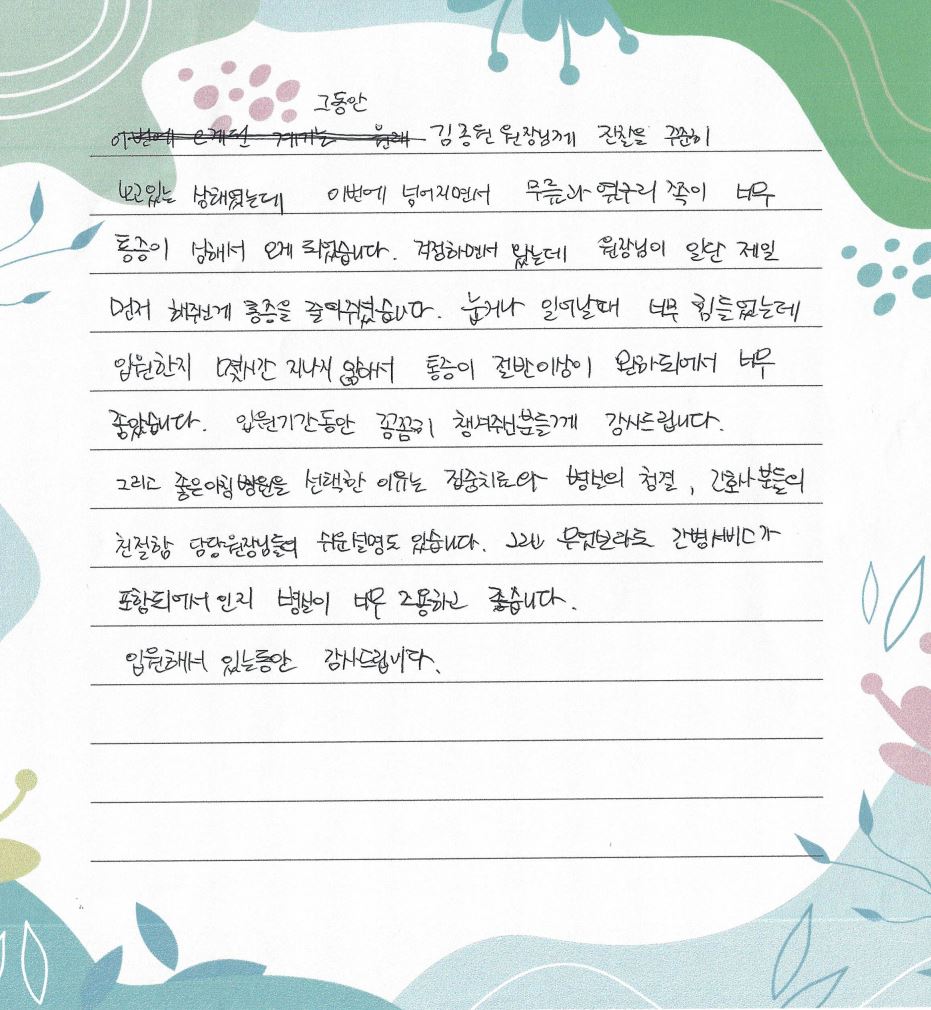 그동안
이번에 오게된 계기는 원래 김종현 원장님께 진찰을 꾸준히
보고있는 상태였는데 이번에 넘어지면서 무릎과 옆구리 쪽이 너무
통증이 심해서 오게 되었습니다. 걱정하면서 왔는데 원장님이 일단 제일
먼저 해주신게 통증을 줄여주셨습니다. 눕거나 일어날때 너무 힘들었는데
입원한지 몇시간 지나지 않해서 통증이 절반이상이 완화되에서 너무
좋았습니다. 입원기간동안 꼼꼼히 챙겨주신분들께 감사드립니다.
그리고 좋은아침병원을 선택한 이유는 집중치료와 병실의 청결, 간호사분들의
친절함 담당원장님들의 쉬운설명도 있습니다. 그리고 무엇보라도 간병서비스가
포함되에서 인지 병실이 너무 조용하고 좋습니다.
입원해서 있는동안 감사드립니다.